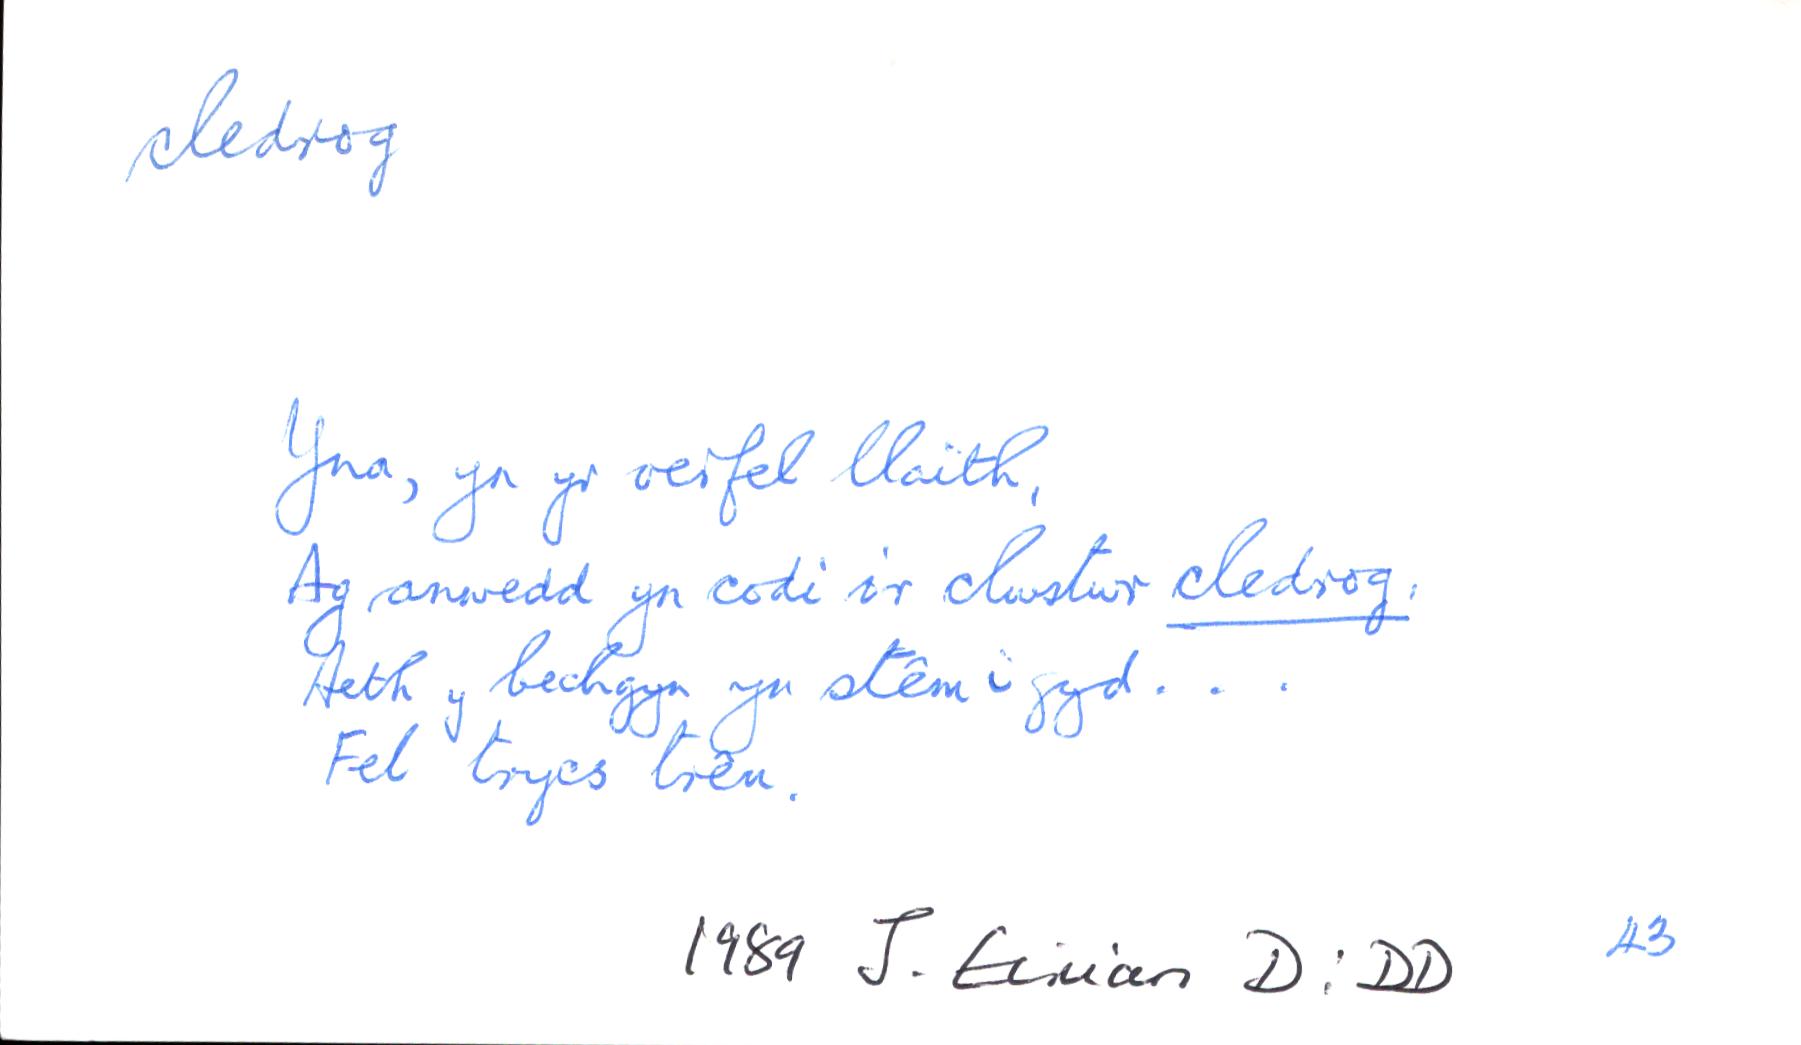 cledrog
Yna, yn yr oerfel llaith,
Ag anwedd yn codi o'r clwstwr cledrog,
Aeth y bechgyn yn stêm i gyd . . .
Fel trycs trên.
1989 J. Eirian D: DD 43